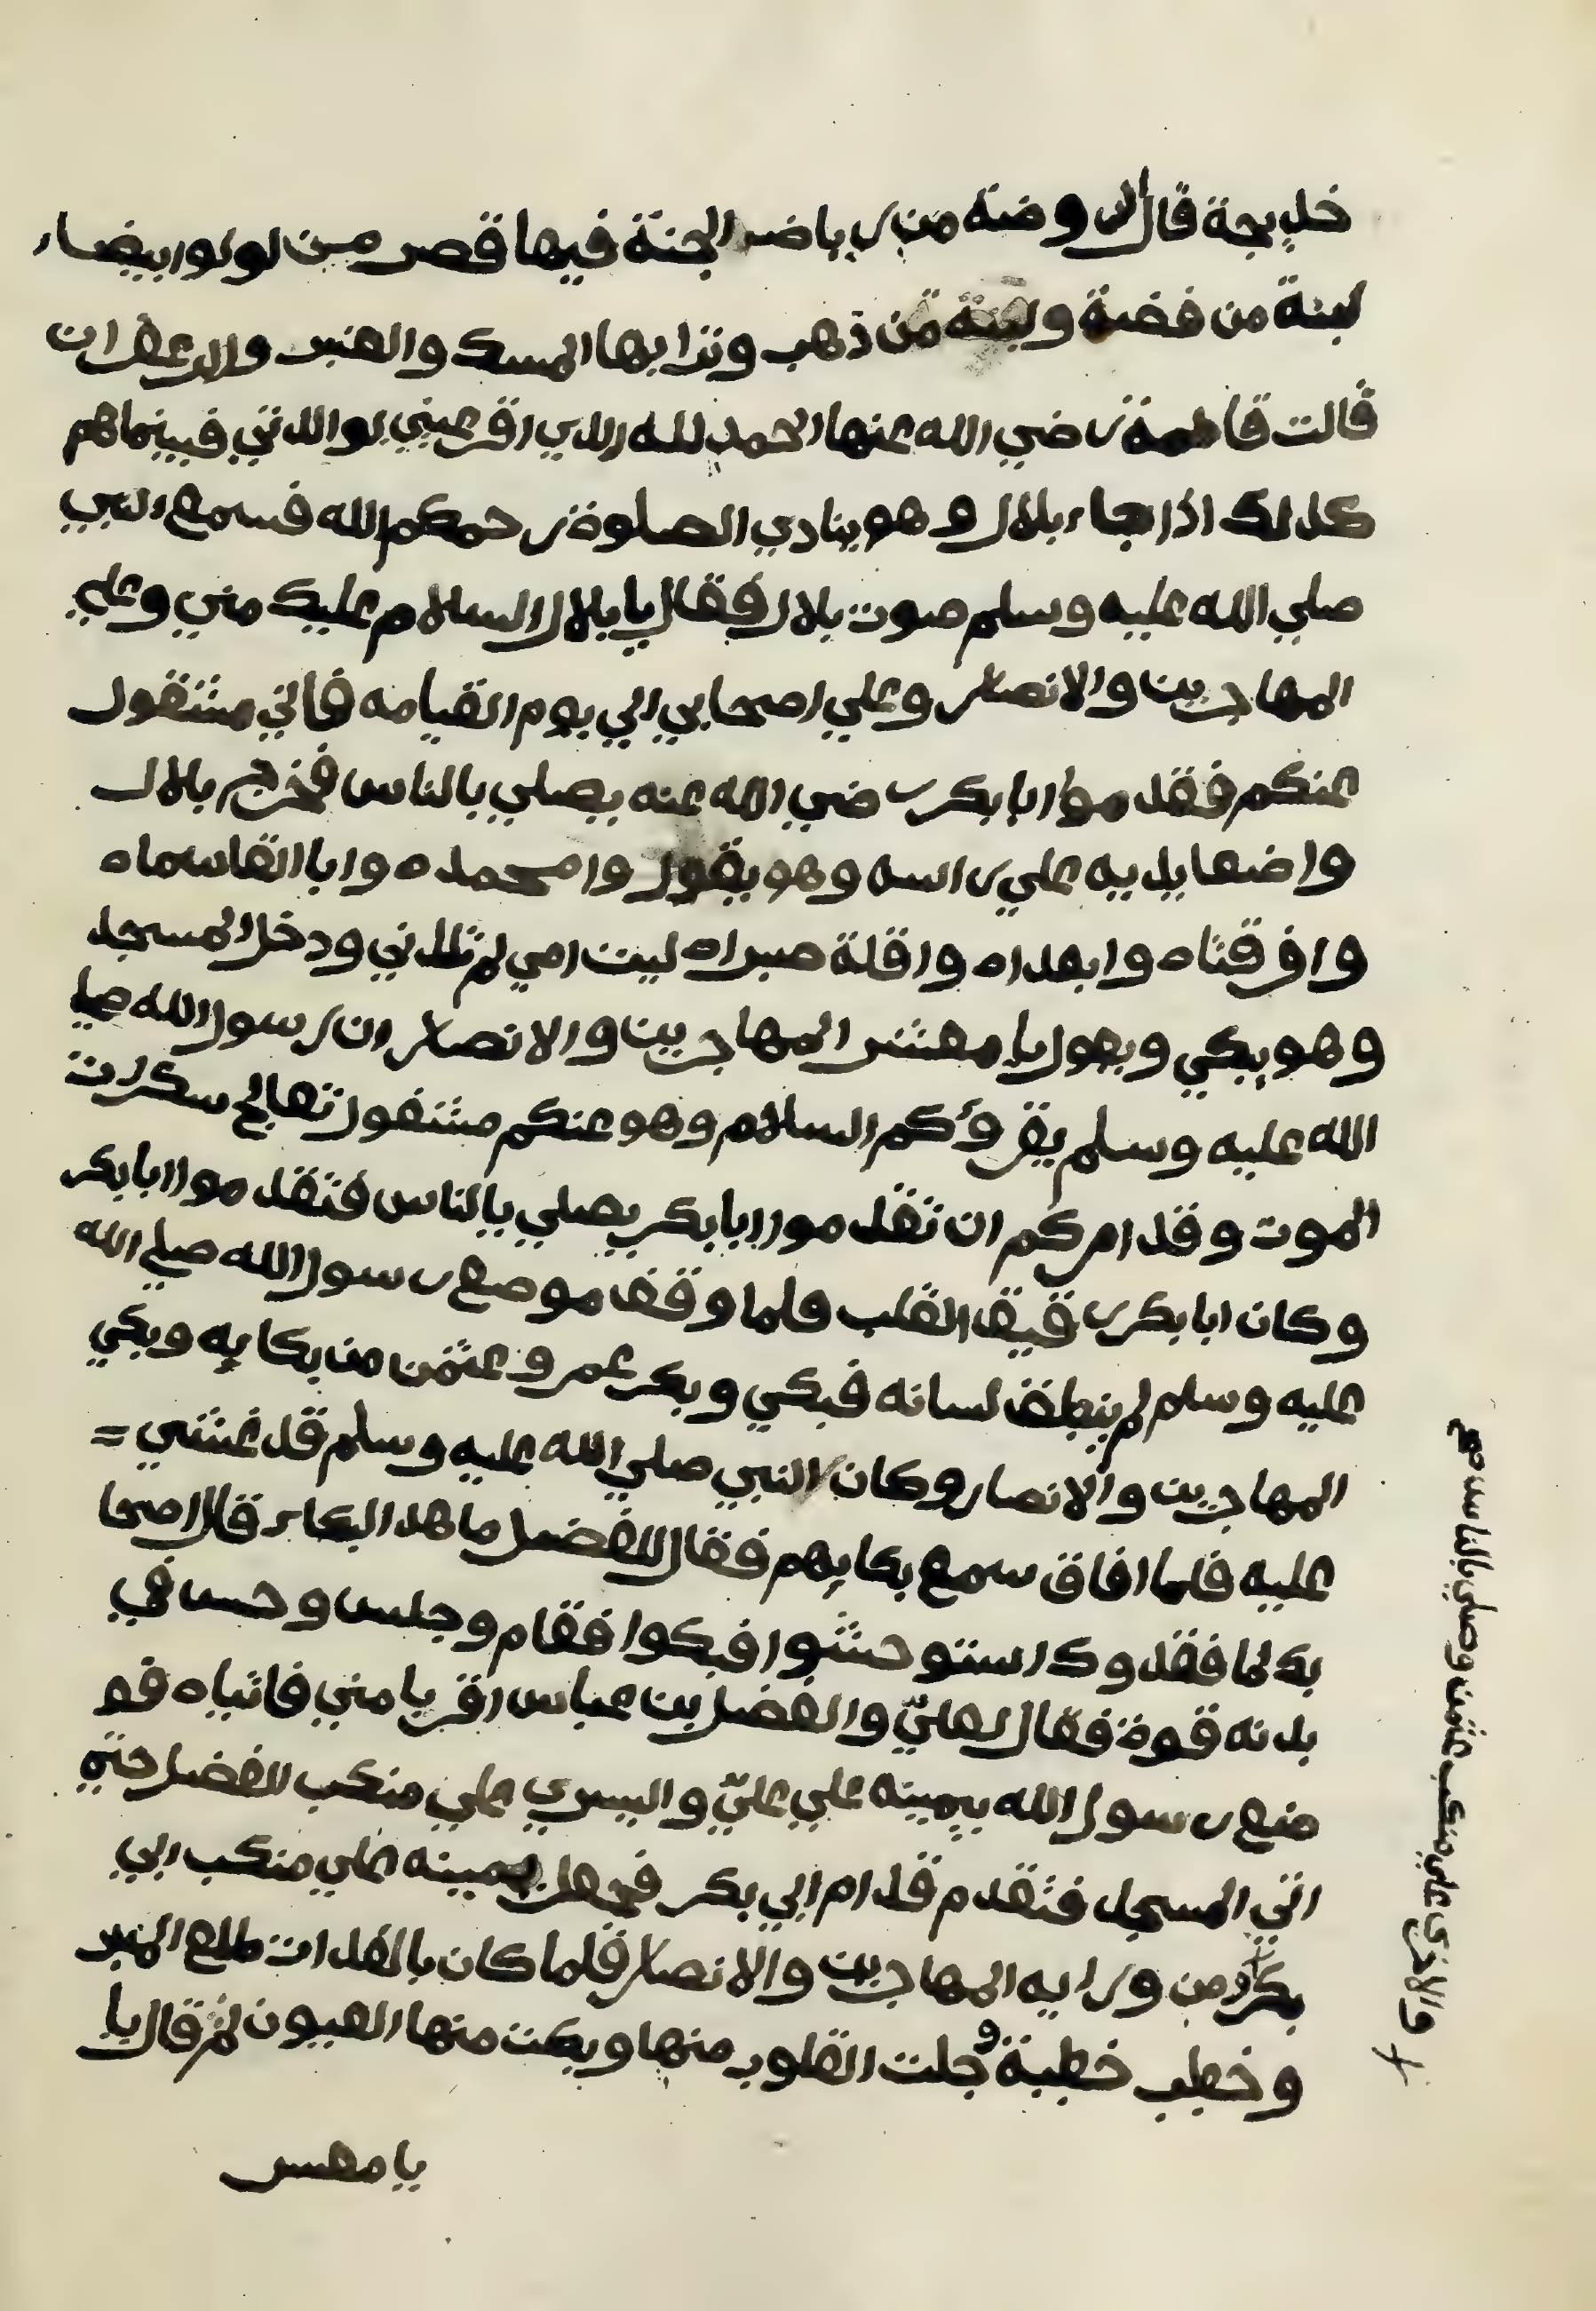 خليجة قال الروضة من رياض الجنة فيها قصر من لولور بيضاء
لبنة من فضة ولبنة من ذهب وترابها المسك والعنبر والزعفران
قالت فاطمة رضي الله عنها الحمد لله الذي اقر عيني لوالدتي فبينماهم
كذلك اذا جاء بلال وهو ينادي الصلوة رحمكم الله فسمع النبي
صلي الله عليه وسلم صوت بلال فقال يا بلال السلام عليك مني وعلي
المهاجرين والانصار وعلي اصحابي الي يوم القيامه فاني مشغول
عنكم فقدموا ابا بكر رضي الله عنه يصلي بالناس فخرج بلال
واضعا يديه علي راسه وهو يقول وامحمداه وابا القاسماه
وافرقتاه وابعداه واقلة صبراه ليت امي لم تلدني ودخل المسجد
وهو يبكي ويقول يا معشر المهاجرين والانصار ان رسول الله صلي
الله عليه وسلم يقرؤكم السلام وهو عنكم مشغول تعالج سكرات
الموت وقد امركم ان تقدموا ابا بكر يصلي بالناس فتقدموا ابا بكر
وكان ابا بكر رقيق القلب فلما وقف موضع رسول الله صلي الله
عليه وسلم لم ينطق لسانه فبكي وبكر عمر وعثمن من بكايه وبكي
المهاجرين والانصار وكان النبي صلي الله عليه وسلم قد غشي =
عليه فلما افاق سمع بكايهم فقال للفضل ما هذا البكاء قال اصحا
بك لما فقدوك استوحشوا فبكوا فقام وجلس وحس في
بدنه قوة فقال لعلي والفضل بن عباس اقربا مني فاتياه فو
ضع رسول الله بيمينه علي علي واليسري علي منكب الفضل حتي
اتي المسجد فتقدم قدام ابي بكر فجعل يمينه علي منكب ابي
بكر ومن ورايه المهاجرين والانصار فلما كان بالغدات طلع المنبر
وخطب خطبة وجلت القلوب منها وبكت منها العيون ثم قال يا
يا معسر
والاخري علي منكب عثمن وصلي بالناس مع